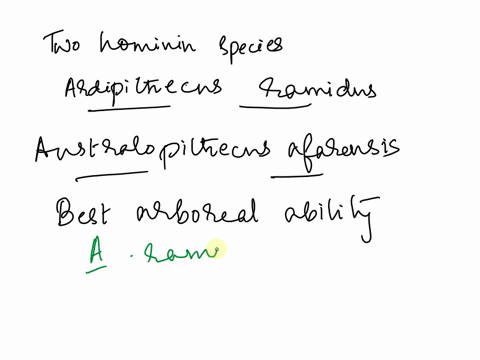 Two hominin species
Ardipithecus ramidus
Australopithecus afarensis
Best arboreal ability
A. ram